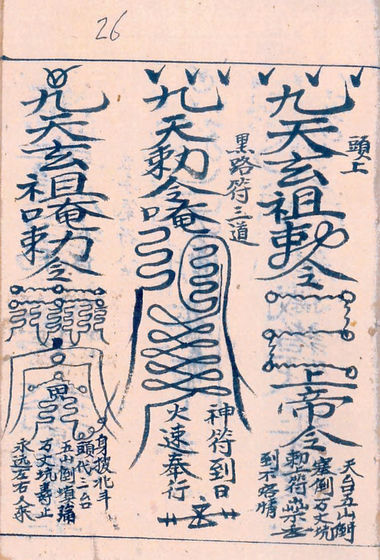 26
頭上
九天玄祖勅令
上帝令
天台五山倒
塞倒万丈坑
勅符
到不容情
黑路符三道
九天勅令唵
神符到日
火速奉行
九天玄祖唵
勅令
身披北斗
頭代三台
五山倒填蕩
万丈坑壽止
永远左右人來